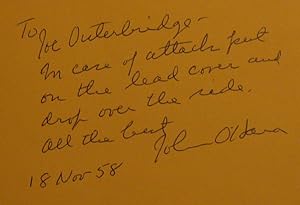 To
Joe Outerbridge -
In case of attack put
on the lead cover and
drop over the side.
All the best
John O'Hara
18 Nov 58